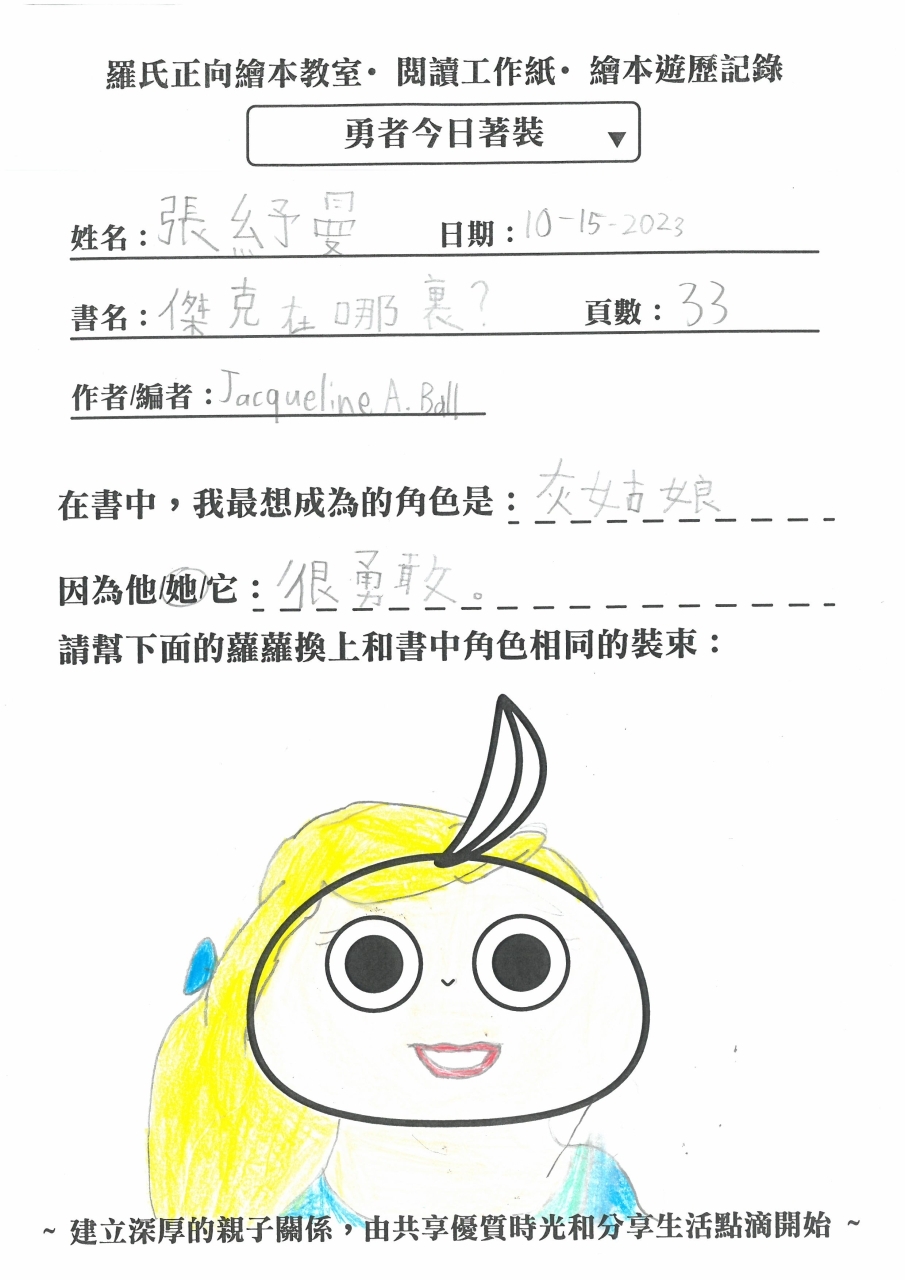 羅氏正向繪本教室・ 閱讀工作紙・ 繪本遊歷記錄
勇者今日著裝 ▼
姓名：張紓曼 日期：10-15-2023
書名：傑克在哪裏？ 頁數：33
作者/編者：Jacqueline A. Ball
在書中，我最想成為的角色是：灰姑娘
因為他/她/它：很勇敢。
請幫下面的蘿蘿換上和書中角色相同的裝束：
~ 建立深厚的親子關係，由共享優質時光和分享生活點滴開始 ~